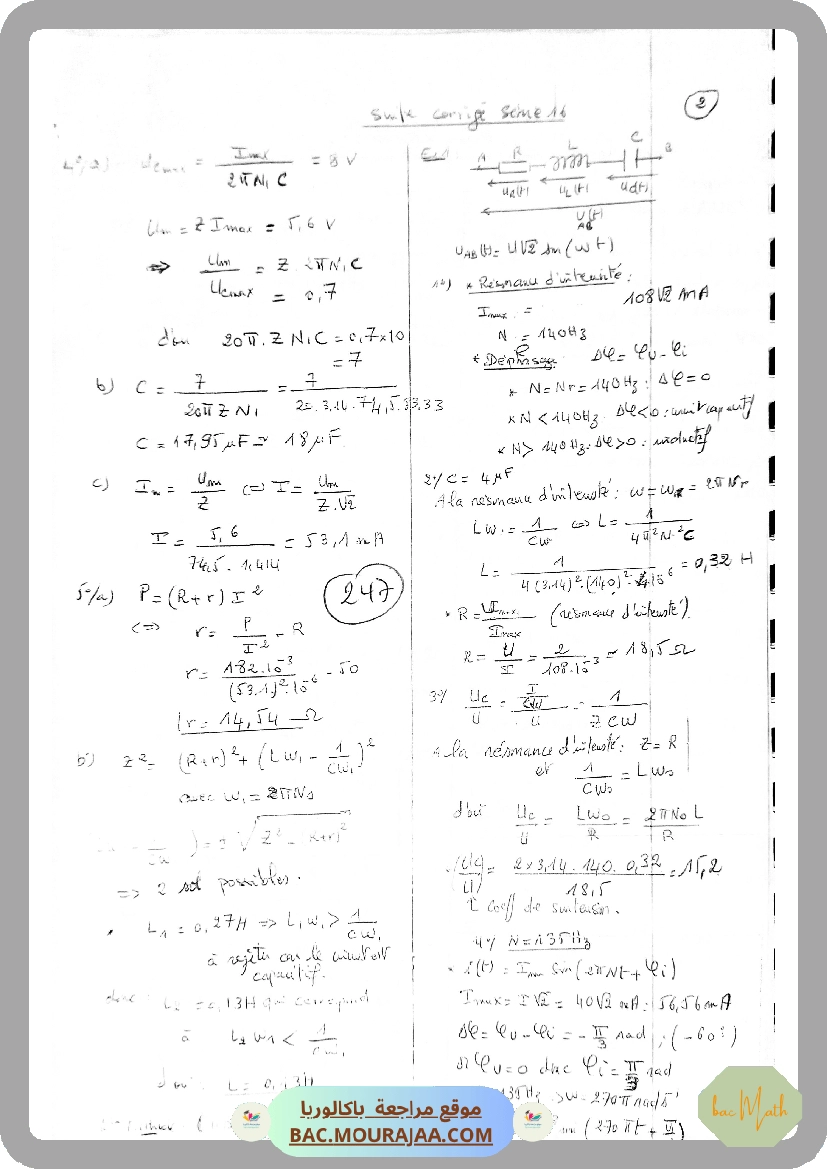 Suite corrigé Série 16
2
4°/a) Ucmax = Imax / 2πN₁C = 8 V
Um = Z Imax = 5,6 V
=> Um / Ucmax = Z. 2πN₁C
= 0,7
d'où 20π. Z N₁C = 0,7×10
= 7
b) C = 7 / 20πZN₁ = 7 / 20. 3,14. 74,5. 33,33
C = 17,95 µF ≃ 18 µF.
c) Im = Um / Z <=> I = Um / Z.√2
I = 5,6 / 74,5. 1,414 = 53,1 mA
5°/a) P = (R+r) I²
247
<=> r = P / I² - R
r = 182.10⁻³ / (53,1)².10⁻⁶ - 50
r = 14,54 Ω
b) Z² = (R+r)² + (Lω₁ - 1/Cω₁)²
avec ω₁ = 2πN₁
=> 2 sol possibles.
L₁ = 0,27H => L₁ω₁ > 1/Cω₁
à rejeter car le circuit est
capacitif.
donc L₂ = 0,13H qui correspond
à L₂ω₁ < 1/Cω₁
d'où : L = 0,13H
Ex1 A R L C B
uR(t) uL(t) uC(t)
u(t)
AB
uAB(t) = U√2 sin(ωt)
1°/ * Résonance d'intensité :
Imax = 108√2 mA
N = 140Hz
* Déphasage Δφ = φu - φi
* N = Nr = 140Hz : Δφ = 0
* N < 140Hz. Δφ < 0 : circuit capacitif
* N > 140Hz. Δφ > 0 : inductif
2°/ C = 4 µF
A la résonance d'intensité : ω = ω₀ = 2πNr
Lω₀ = 1/Cω <=> L = 1 / 4π²N²C
L = 1 / 4(3,14)².(140)².4.10⁻⁶ = 0,32 H
* R = Umax / Imax (résonance d'intensité)
R = U / I = 2 / 108.10⁻³ ≃ 18,5 Ω
3°/ Uc / U = (I/Cω) / U = 1 / ZCω
A la résonance d'intensité : Z = R
et 1/Cω₀ = Lω₀
d'où Uc / U = Lω₀ / R = 2πN₀L / R
(Uc / U) = 2×3,14.140.0,32 / 18,5 = 15,2
coeff de surtension.
4°/ N = 135Hz
* i(t) = Imax Sin(2πNt + φi)
Imax = I√2 = 40√2 mA = 56,56 mA
Δφ = φu - φi = -π/3 rad ; (-60°)
or φu = 0 donc φi = π/3 rad
135Hz => ω = 270π rad s⁻¹
(270πt + π/3)
موقع مراجعة باكالوريا
BAC.MOURAJAA.COM
bac Math